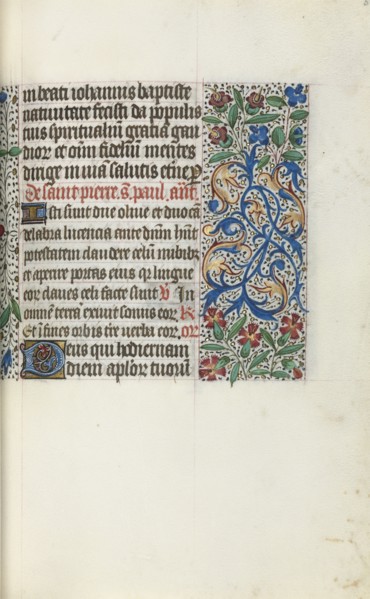 in beati iohannis baptiste
natiuitate fecisti da populis
tuis spiritualiu gratia gau
dior et oim fideliu mentes
dirige in uia salutis etne p
De saint pierre. s. paul. ant
Isti sunt due oliue et duo ca
delabra lucencia ante dnm hnt
potestatem claudere celu nubibz
et aperire portas eius qr lingue
eor claues celi facte sunt v In
omne terra exiuit sonus eor R
Et i fines orbis tre uerba eor. or
Deus qui hodiernam
diem aplor tuoru